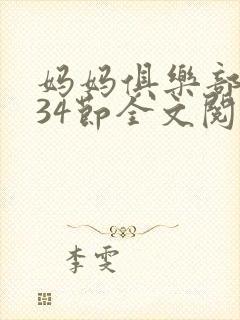 妈妈俱樂部
34節全文閱
李雯